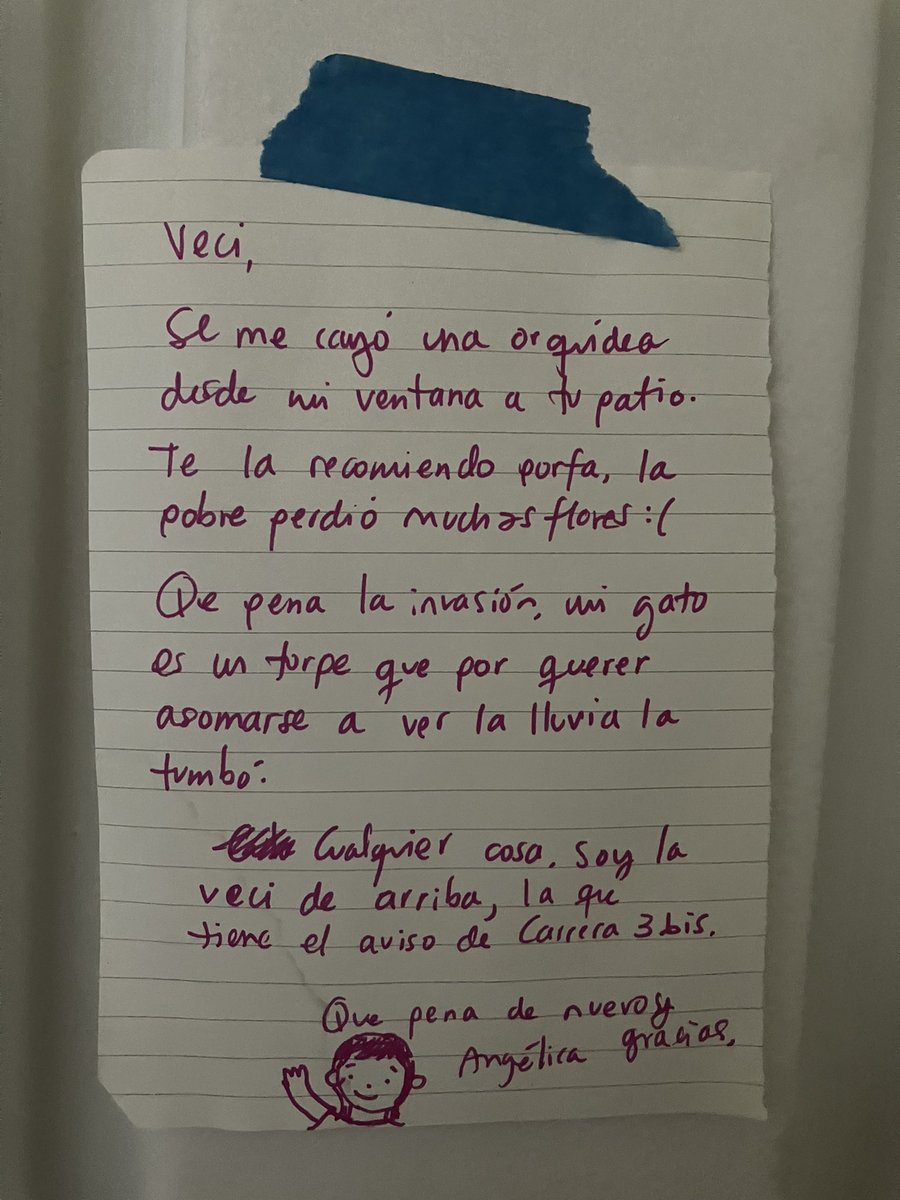 Veci,
Se me cayó una orquídea
desde mi ventana a tu patio.
Te la recomiendo porfa, la
pobre perdió muchas flores :(
Que pena la invasión, mi gato
es un torpe que por querer
asomarse a ver la lluvia la
tumbó.
Cualquier cosa, soy la
veci de arriba, la que
tiene el aviso de Carrera 3 bis.
Que pena de nuevo y
gracias.
Angélica